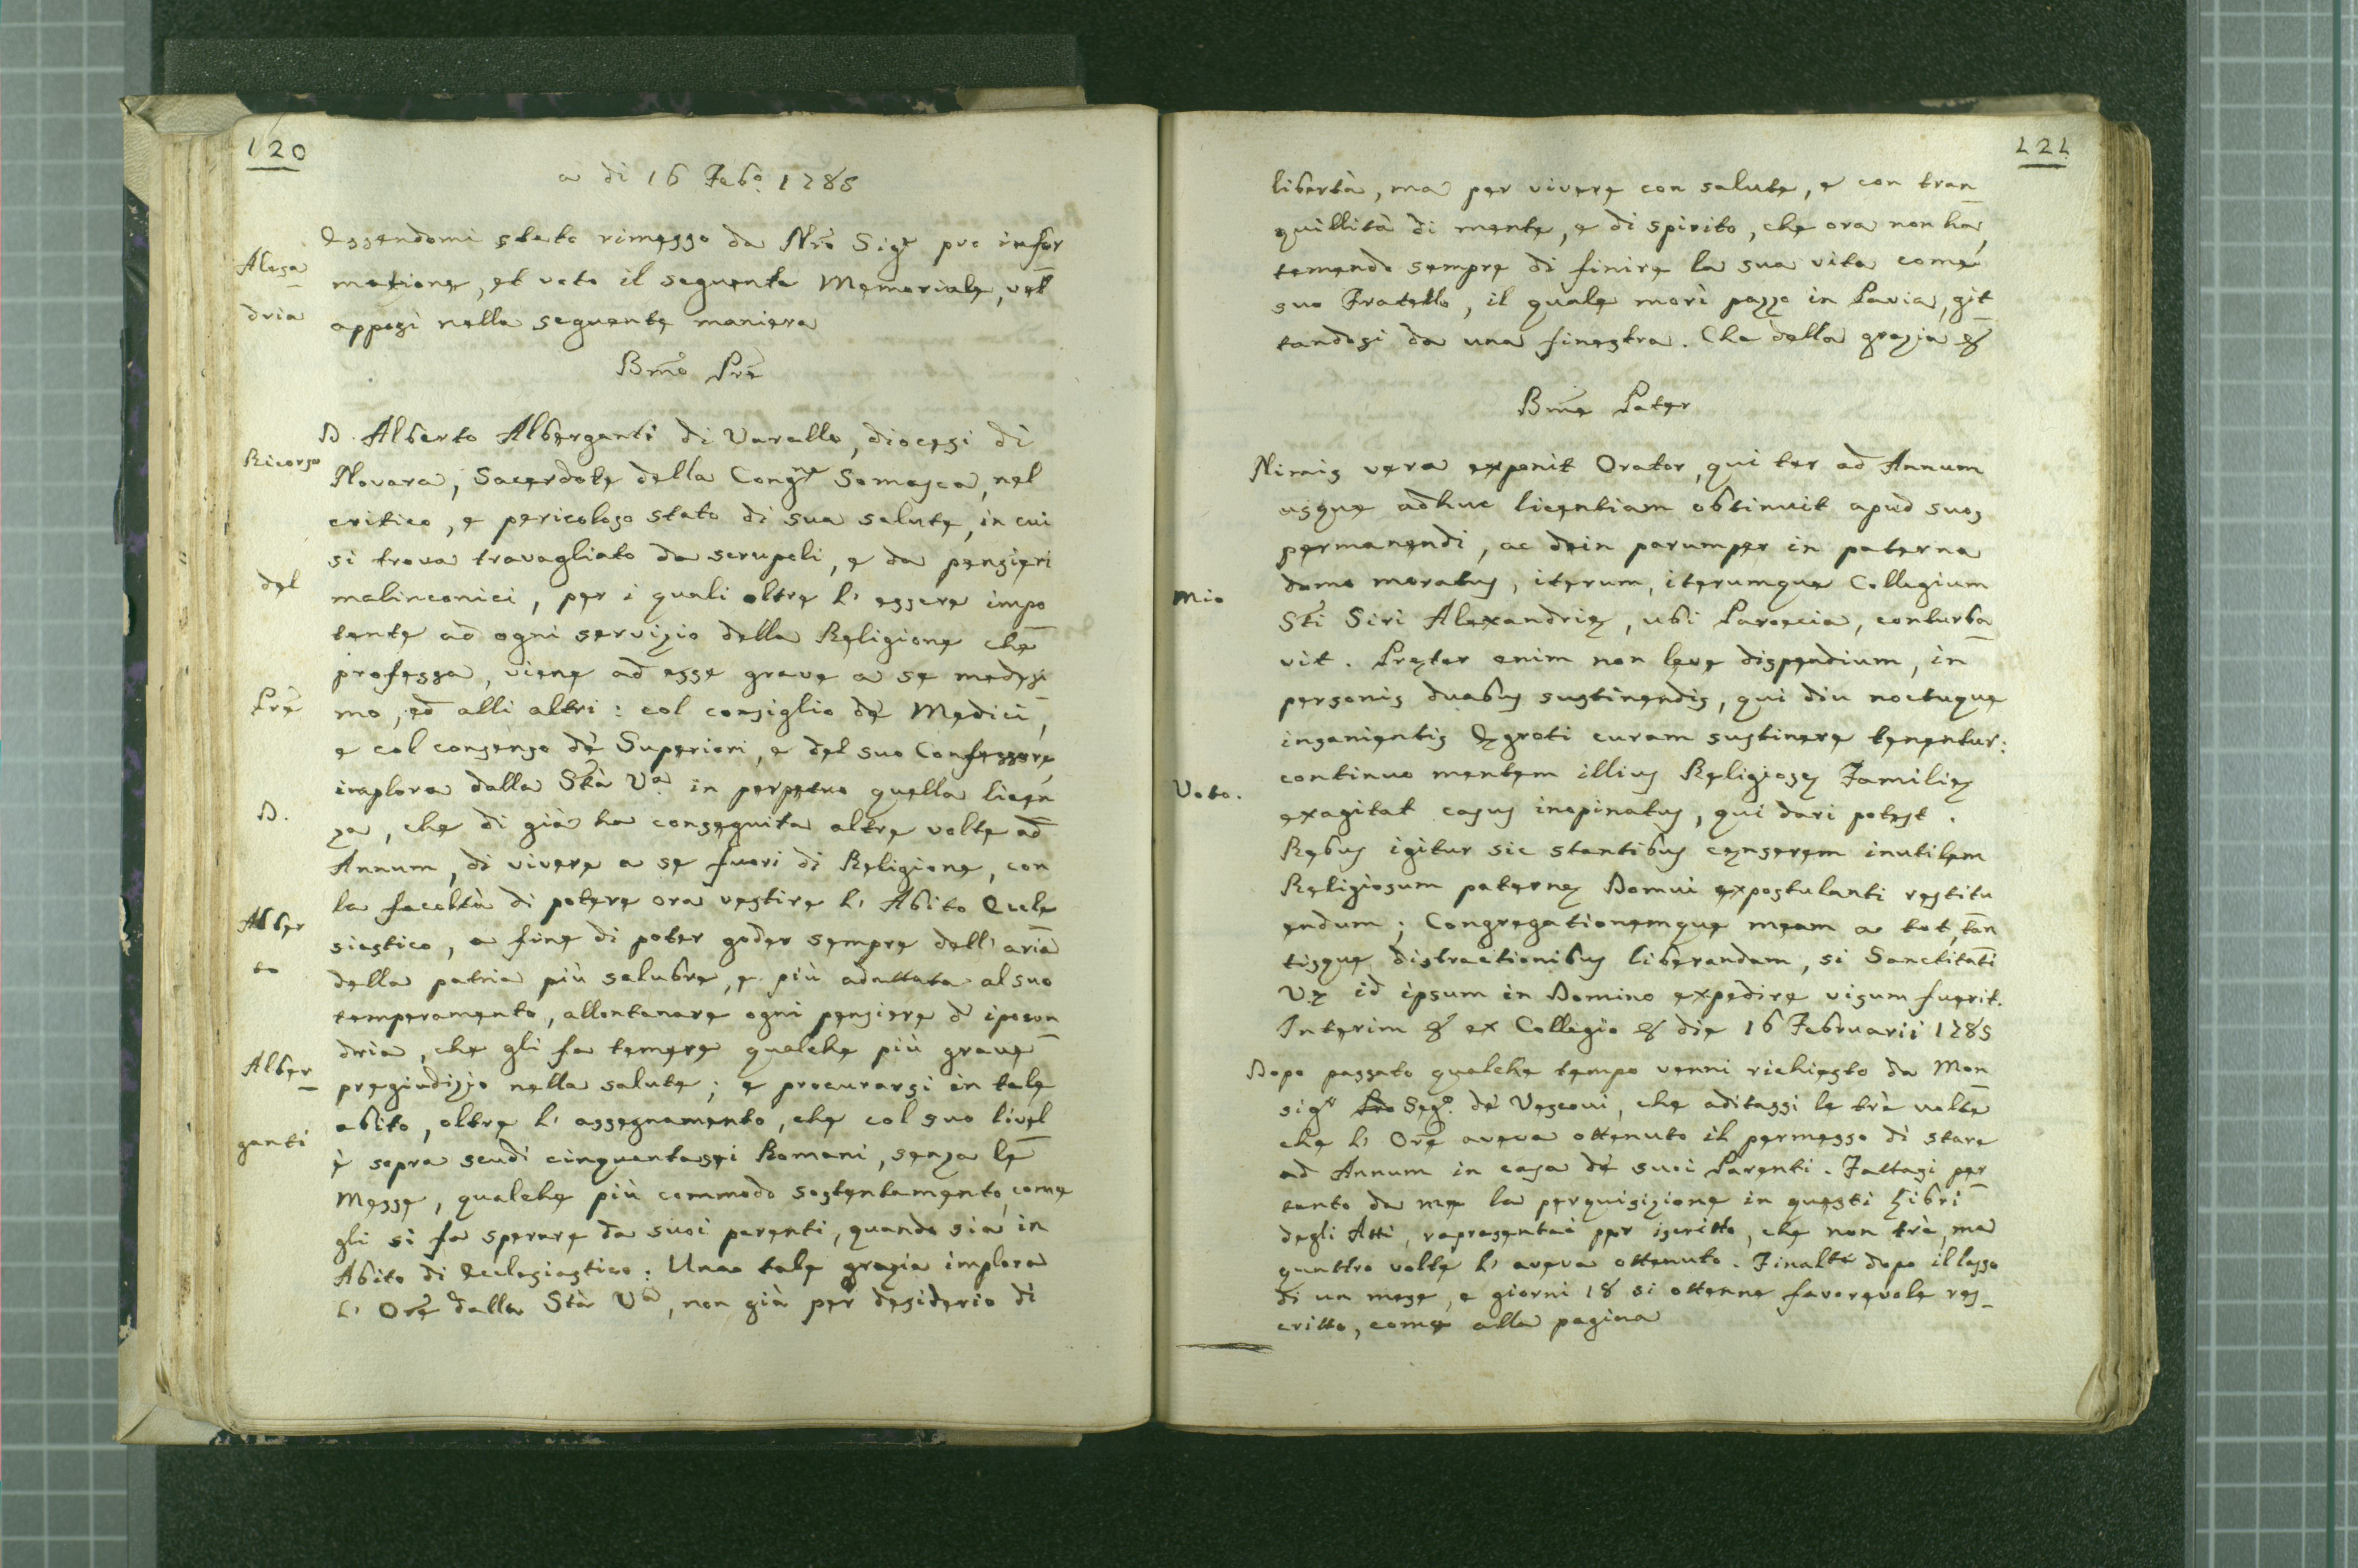 120
a di 16 Febº. 1785
Alesa
dria
Essendomi stato rimesso da Nrõ Sigr pro infor
mazione, et voto il seguente Memoriale, vel
apposi nella seguente maniera
Bmõ Prẽ
Ricorso
del
Prẽ
D.
Alber
to
Alber
ganti
D. Alberto Alberganti di Varallo, diocesi di
Novara, Sacerdote della Congne Somasca, nel
critico, e pericoloso stato di sua salute, in cui
si trova travagliato da scrupoli, e da pensieri
malinconici, per i quali oltre l' essere impo
tente ad ogni servizio della Religione che
professa, viene ad esse grave a se medesi
mo, ed alli altri: col consiglio dè Medici,
e col consenso dè Superiori, e del suo Confessore,
implora dalla Stà Va in perpetuo quella licen
za, che di già ha conseguita altre volte ad
Annum, di vivere a se fuori di Religione, con
la facoltà di potere ora vestire l' Abito Eccle
siastico, a fine di poter goder sempre dell' aria
della patria più salubre, e più adattata al suo
temperamento, allontanare ogni pensiere d' ipocon
dria, che gli fa temere qualche più grave
pregiudizio nella salute; e procurarsi in tale
abito, oltre l' assegnamento, che col suo livel
è sopra scudi cinquantasei Romani, senza le
Messe, qualche più commodo sostentamento, come
gli si fa sperare da suoi parenti, quando sia in
Abito di Ecclesiastico: Una tale grazia implora
l' Orẽ dalla Stà Va, non già per desiderio di
121
libertà, ma per vivere con salute, e con tran
quillità di mente, e di spirito, che ora non ha,
temendo sempre di finire la sua vita come
suo Fratello, il quale morì pazzo in Pavia, git
tandosi da una finestra. Che della grazia &
Bmẽ Pater
Mio
Voto.
Nimis vera exponit Orator, qui ter ad Annum
usque adhuc licentiam obtinuit apud suos
permanendi, ac dein parumper in paterna
domo moratus, iterum, iterumque Collegium
Sti Siri Alexandrię, ubi Paroecia, conturba
vit. Pręter enim non leve dispendium, in
personis duabus sustinendis, qui diu noctuque
insanientis Ęgroti curam sustinere tenentur:
continuo mentem illius Religiosę Familię
exagitat casus inopinatus, qui dari potest.
Rebus igitur sic stantibus censerem inutilem
Religiosum paternę Domui expostulanti restitu
endum; Congregationemque meam a tot, tan
tisque distractionibus liberandam, si Sanctitati
Vę id ipsum in Domino expedire visum fuerit.
Interim & ex Collegio & die 16 Februarii 1785
Dopo passato qualche tempo venni richiesto da Mon
sigr Segº. dè Vescovi, che additassi le trè volte
che l' Orẽ aveva ottenuto il permesso di stare
ad Annum in casa dè suoi Parenti. Fattasi per
tanto da me la perquisizione in questi Libri
degli Atti, rapresentai per iscritto, che non trè, ma
quattro volte l' aveva ottenuto. Finaltẽ dopo il lasso
di un mese, e giorni 18 si ottenne favorevole res
critto, come alla pagina